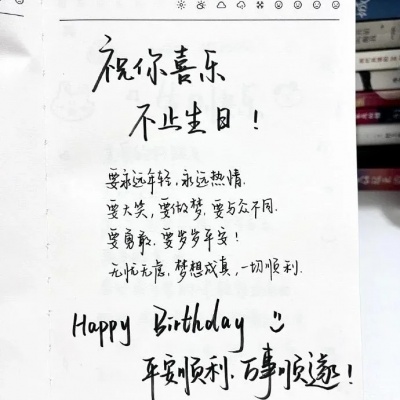 祝你喜乐
不止生日！
要永远年轻，永远热情.
要大笑，要做梦，要与众不同.
要勇敢，要岁岁平安！
无忧无虑，梦想成真，一切顺利.
Happy Birthday
平安顺利.百事顺遂！